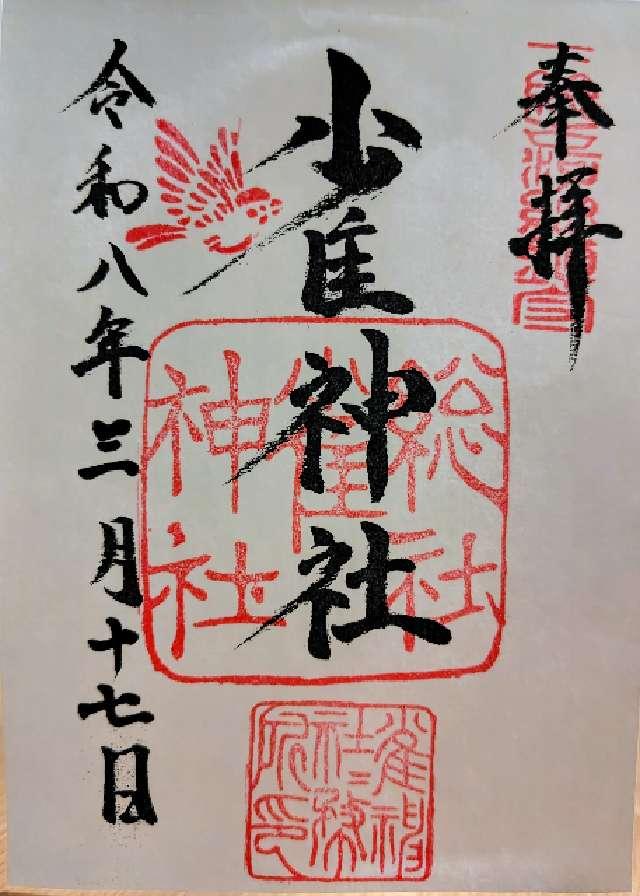 奉拝
雀神社
総社
雀
神社
令和八年三月十七日